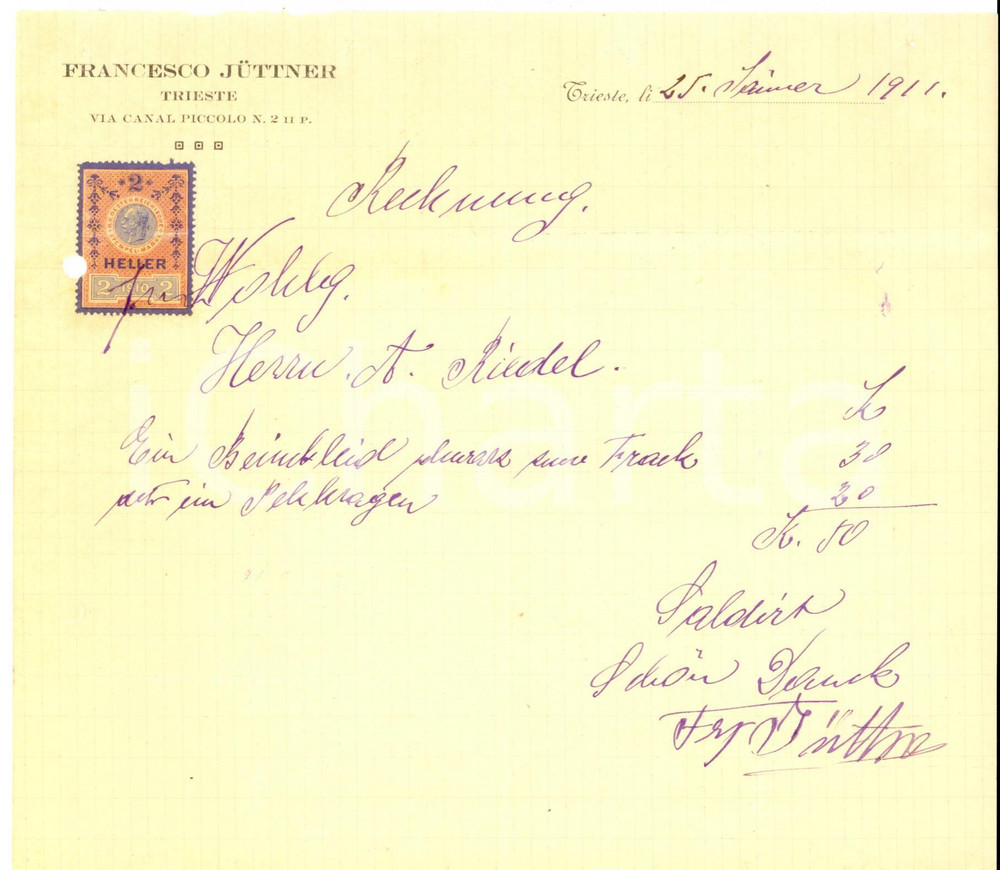 FRANCESCO JÜTTNER
TRIESTE
VIA CANAL PICCOLO N. 2 II P.
Trieste, li 25. Jänner 1911.
2
HELLER
2 1910 2
Rechnung.
für Wohlg.
Herrn. A. Riedel.
K
Ein Beinkleid schwarz zum Frack 30
ein Pelzkragen 20
K. 50
Saldirt
Schön Dank
Frz Jüttner
iCharta